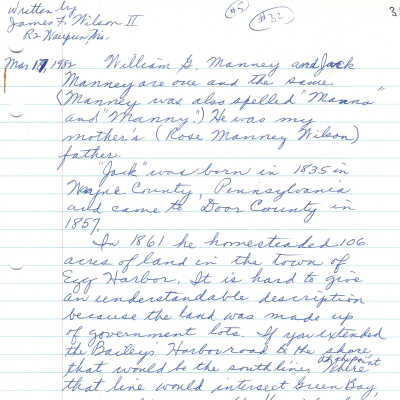 Written by
James F. Wilson II
R2 Waupun, Wis.
#5
#32
3
Mar 17, 1982 William G. Manney and Jack
Manney are one and the same
(Manney was also spelled "Manna"
and "Manny".) He was my
mother's (Rose Manney Wilson)
father.
"Jack" was born in 1835 in
Wayne County, Pennsylvania
and came to Door County in
1857.
In 1861 he homesteaded 106
acres of land in the town of
Egg Harbor. It is hard to give
an understandable description
because the land was made up
of government lots. If you extended
the Bailey's Harbour road to the shore,
that would be the south line. the point where
that line would intersect Green Bay,